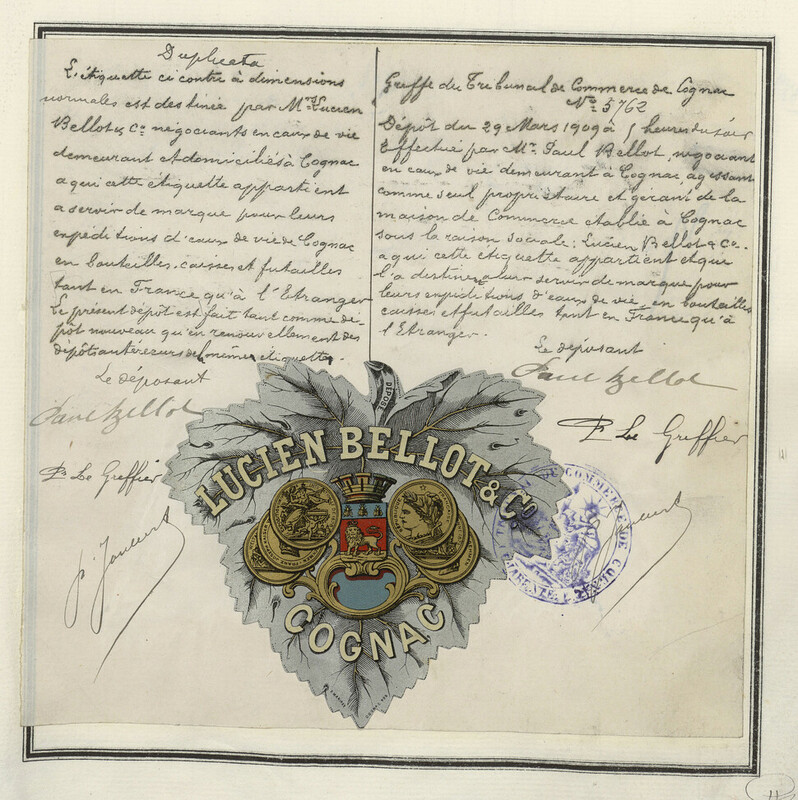 Duplicata
L'étiquette ci contre à dimensions
normales est destinée par Mrs Lucien
Bellot & Co négociants en eaux de vie
demeurant et domiciliés à Cognac
a qui cette étiquette appartient
a servir de marque pour leurs
expéditions d'eaux de vie de Cognac
en bouteilles, caisses et futailles
tant en France qu'à l'Etranger
Le présent dépôt est fait tant comme dé-
pôt nouveau qu'en renouvellement des
dépôts antérieurs de la même étiquette.
Le déposant
Paul Bellot
Pr Le Greffier
Greffe du Tribunal de Commerce de Cognac
No 5762
Dépôt du 29 Mars 1909 à 5 heures du soir
Effectué par Mr. Paul Bellot, négociant
en eaux de vie demeurant à Cognac, agissant
comme seul propriétaire et gérant de la
maison de Commerce etablie à Cognac
sous la raison sociale: Lucien Bellot & Co.
a qui cette étiquette appartient et que
l'a destinée a leur servir de marque pour
leurs expéditions d'eaux de vie, en bouteilles
caisses et futailles tant en France qu'à
l'Etranger.
Le déposant
Paul Bellot
Pr Le Greffier
DÉPOSÉ
LUCIEN BELLOT & Co
COGNAC
TRIBUNAL DE COMMERCE DE COGNAC
CHARENTE